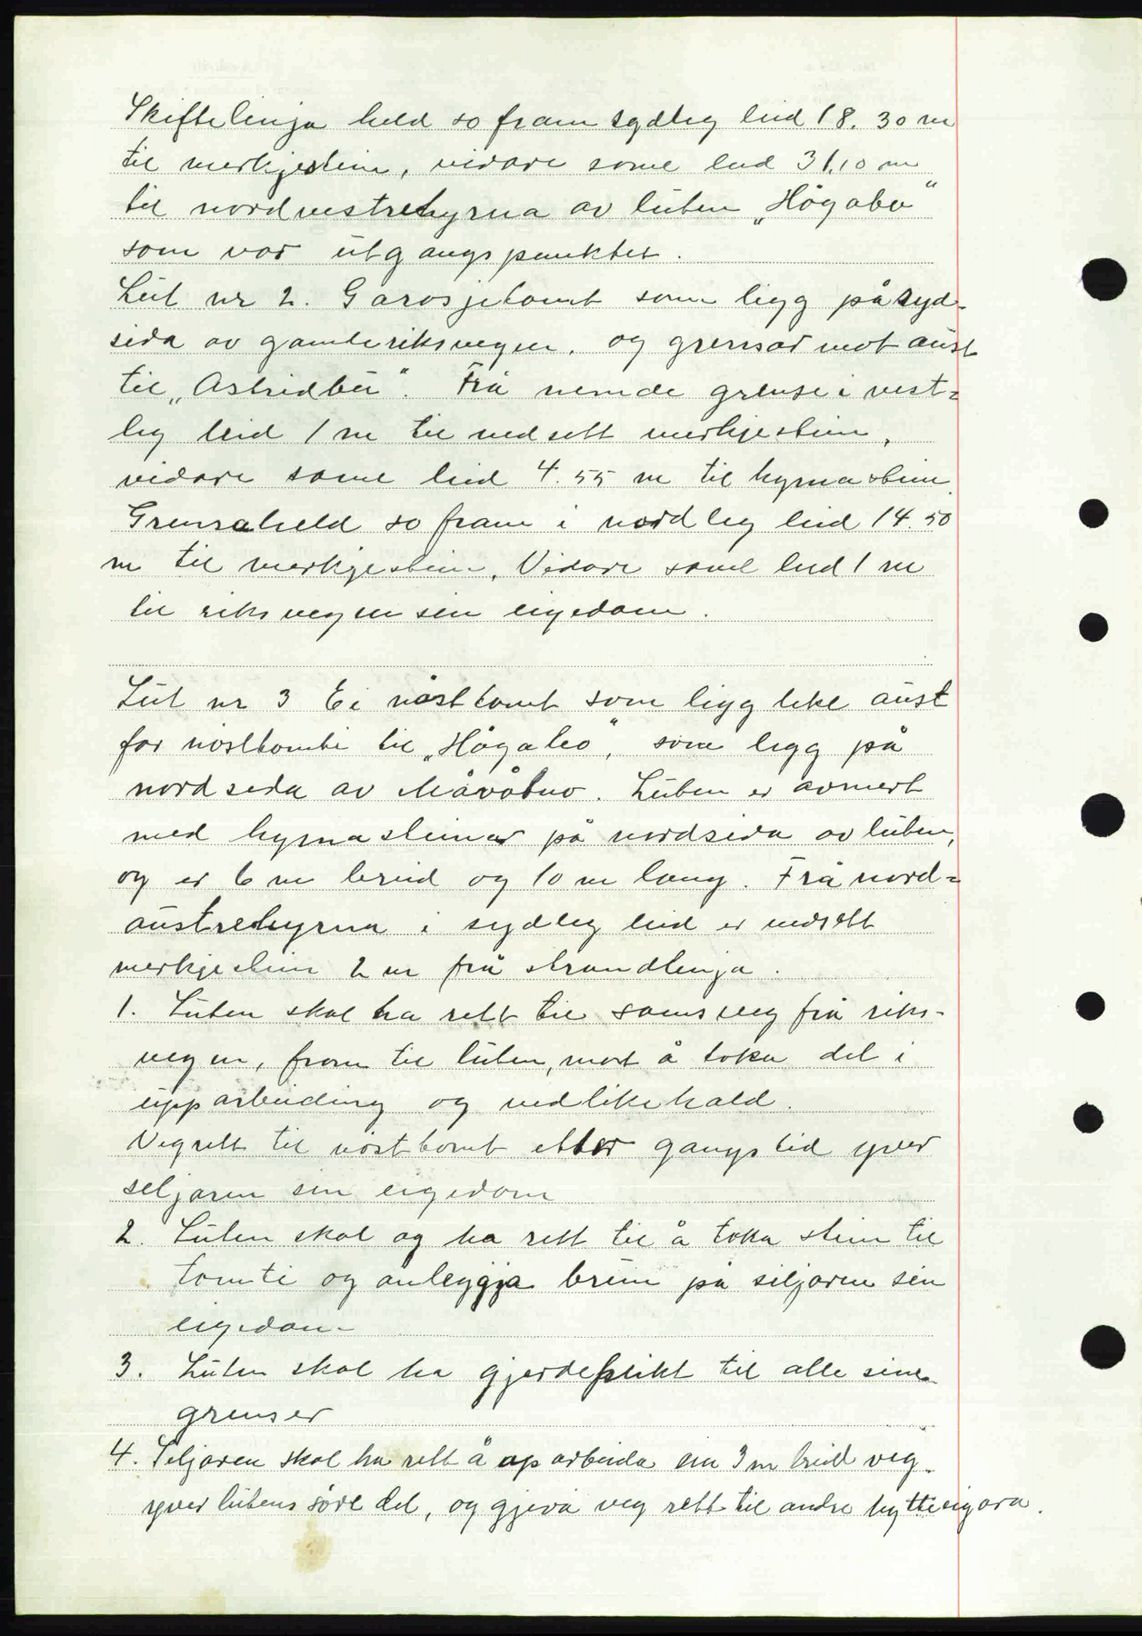 Skiftelinja held so fram sydleg leid 18.30 m
til merkjestein, vidare same leid 31,10 m
til nordvestrehyrna av luten „Högabu"
som var utgangspunktet.
Lut nr 2. Garasjetomt som ligg på syd-
sida av gamleriksvegen, og grensar mot aust
til „Astridbu". Frå nemde grense i vest-
leg leid 1 m til nedsett merkjestein,
vidare same leid 4.55 m til hyrnastein
Grensa held so fram i nordleg leid 14.50
m til merkjestein. Vidare same leid 1 m
til riksvegen sin eigedom.
Lut nr 3 Ei nösttomt som ligg like aust
for nösttomti til „Högabo", som ligg på
nordsida av Måvåtno. Luten er avmerkt
med hyrnasteinar på nordsida av luten,
og er 6 m breid og 10 m lang. Frå nord-
austrehyrna i sydleg leid er nedsett
merkjestein 2 m frå strandlinja.
1. Luten skal ha rett til samsveg frå riks-
vegen, fram til luten, mot å taka del i
upparbeiding og vedlikehald.
Vegrett til nösttomt etter gangstid yver
seljaren sin eigedom
2. Luten skal og ha rett til å taka stein til
tomti og anleggja brun på seljaren sin
eigedom-
3. Luten skal ha gjerdeplikt til alle sine
grenser
4. Seljaren skal ha rett å oparbeida ein 3 m breid veg
yver lutens söre del, og gjeva veg rett til andre hytteeigara.